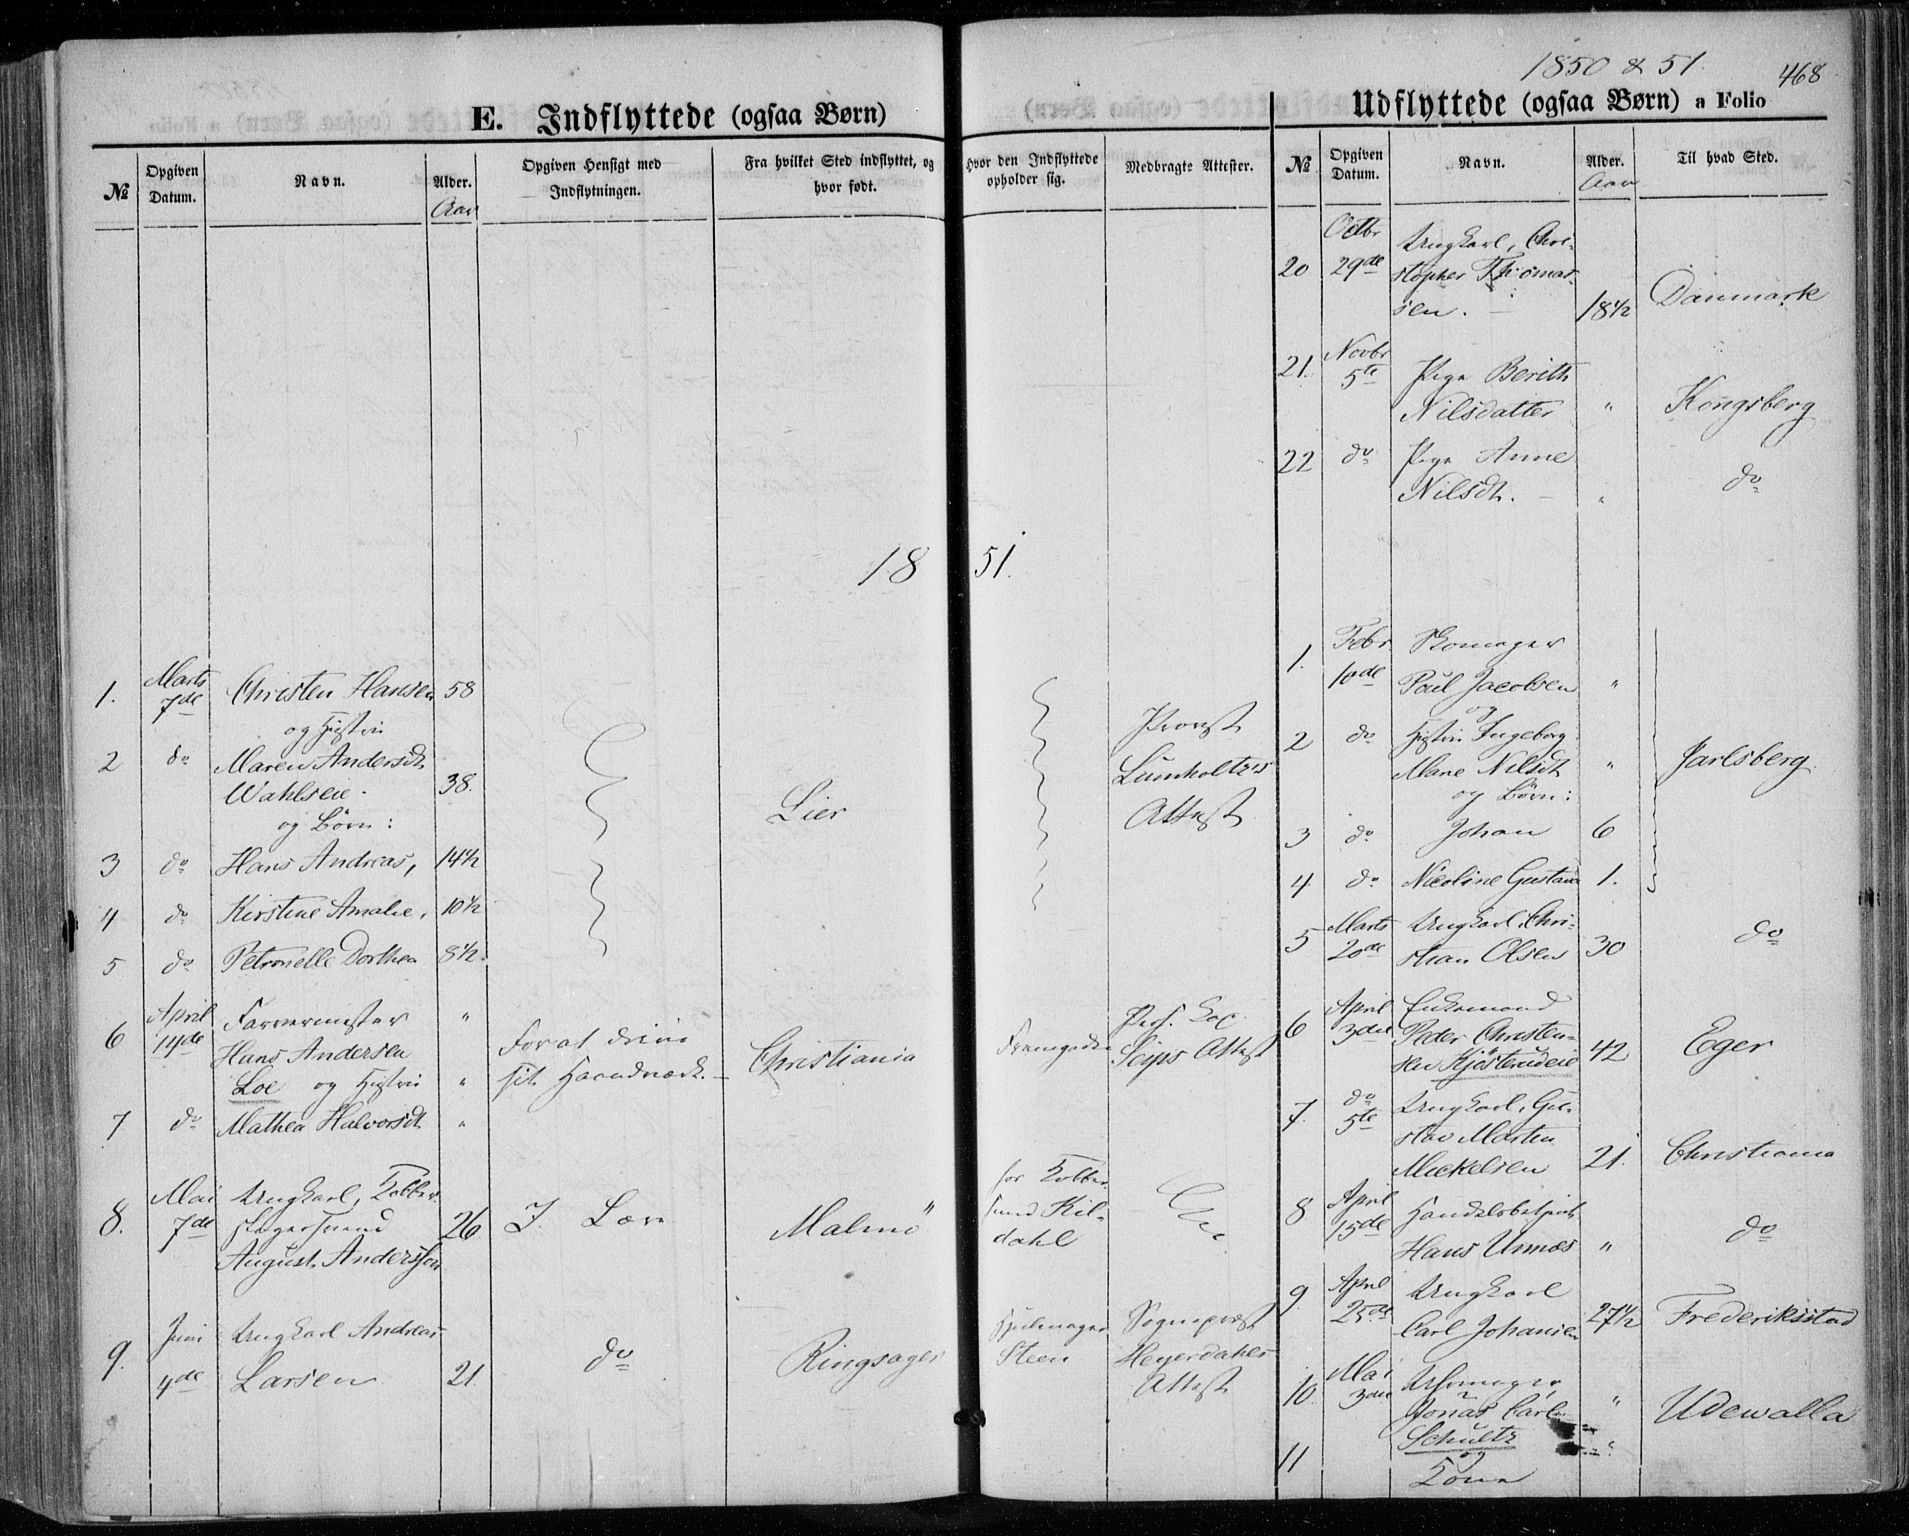 1850 & 51. 468
E. Indflyttede (ogsaa Børn)
№ Opgiven Datum. Navn. Alder. Opgiven Hensigt med Indflytningen. Fra hvilket Sted indflyttet, og hvor født. Hvor den Indflyttede opholder sig. Medbragte Attester.
Aar
1851.
1. Marts 7de Christen Hansen 58
og Hustru
2 do Maren Andersdt
Wahlseie. 38.
og Børn:
Lier
Provst
Lumholtzes
Attest
3 do Hans Andreas, 14½
4 do Kirstine Amalie, 10½
5 do Petronelle Dorthea 8½
6 April 14de Farvermester "
Hans Andersen
Loe og Hustru "
For at drive
sit Haandværk.
Christiania
Pers. Cap.
Seips Attest
7 do Mathea Halvorsdt. "
8. Mai 7de Ungkarl, Kobber-
slagersvend
August Andersson 26
I Lære
Malmö
hos Kobber
smed Kil-
dahl
9. Juni 4de Ungkarl Andreas
Larsen 21.
do
Ringsager
Hjulmager
Steen
Sognepræst
Heyerdahls
Attest
Udflyttede (ogsaa Børn) a Folio
№ Opgiven Datum. Navn. Alder. Til hvad Sted.
Aar
20 Octbr 29de Ungkarl, Chri-
stopher Thomas-
sen. 18½ Danmark
21. Novbr 5te Pige Berith
Nilsdatter " Kongsberg
22 do Pige Anne
Nilsdt. " do
1. Febr 10de Skomager
Paul Jacobsen "
og
2 do Hustru Ingeborg
Marie Nilsdt " Jarlsberg
og Børn:
3 do Johan 6
4 do Nicoline Gustava 1.
5 Marts 20de Ungkarl, Chri-
stian Olsen 30 do
6 April 3die Enkemand
Peder Christen-
sen Kjöstendeie 42 Eger
7. do 5te Ungkarl, Gu-
stav Marten
Mickelsen 21. Christiania
8 April 15de Handelsbetjent
Hans Unnæs " do
9. April 25de Ungkarl
Carl Johansen 27½ Frederiksstad
10. Mai 3die Uhrmager
Jonas Carl "
Schultz Udewalla
og
11 Kone "